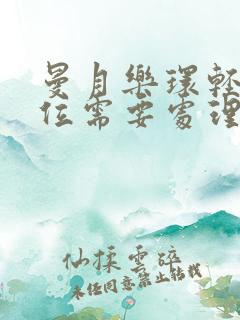 曼月樂環輕
位需要處理
仙揉雲碎
未任同意禁止转载